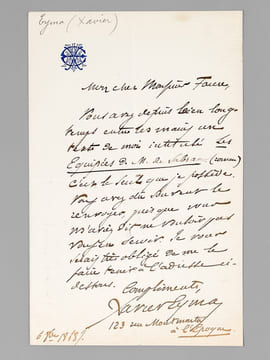 Eyma (Xavier)
Mon cher Monsieur Faure,
Vous avez depuis bien long-
temps entre les mains un
texte de moi intitulé Les
Equipées de M. de
C'est le seul que je possède.
Vous avez du souvent le
renvoyer, puisque vous
m'avez dit ne vouloir pas
vous en servir. Je vous
serais très obligé de me le
faire tenir à l'adresse ci-
dessous.
Compliments,
Xavier Eyma
123 rue Montmartre
à l'Epoque